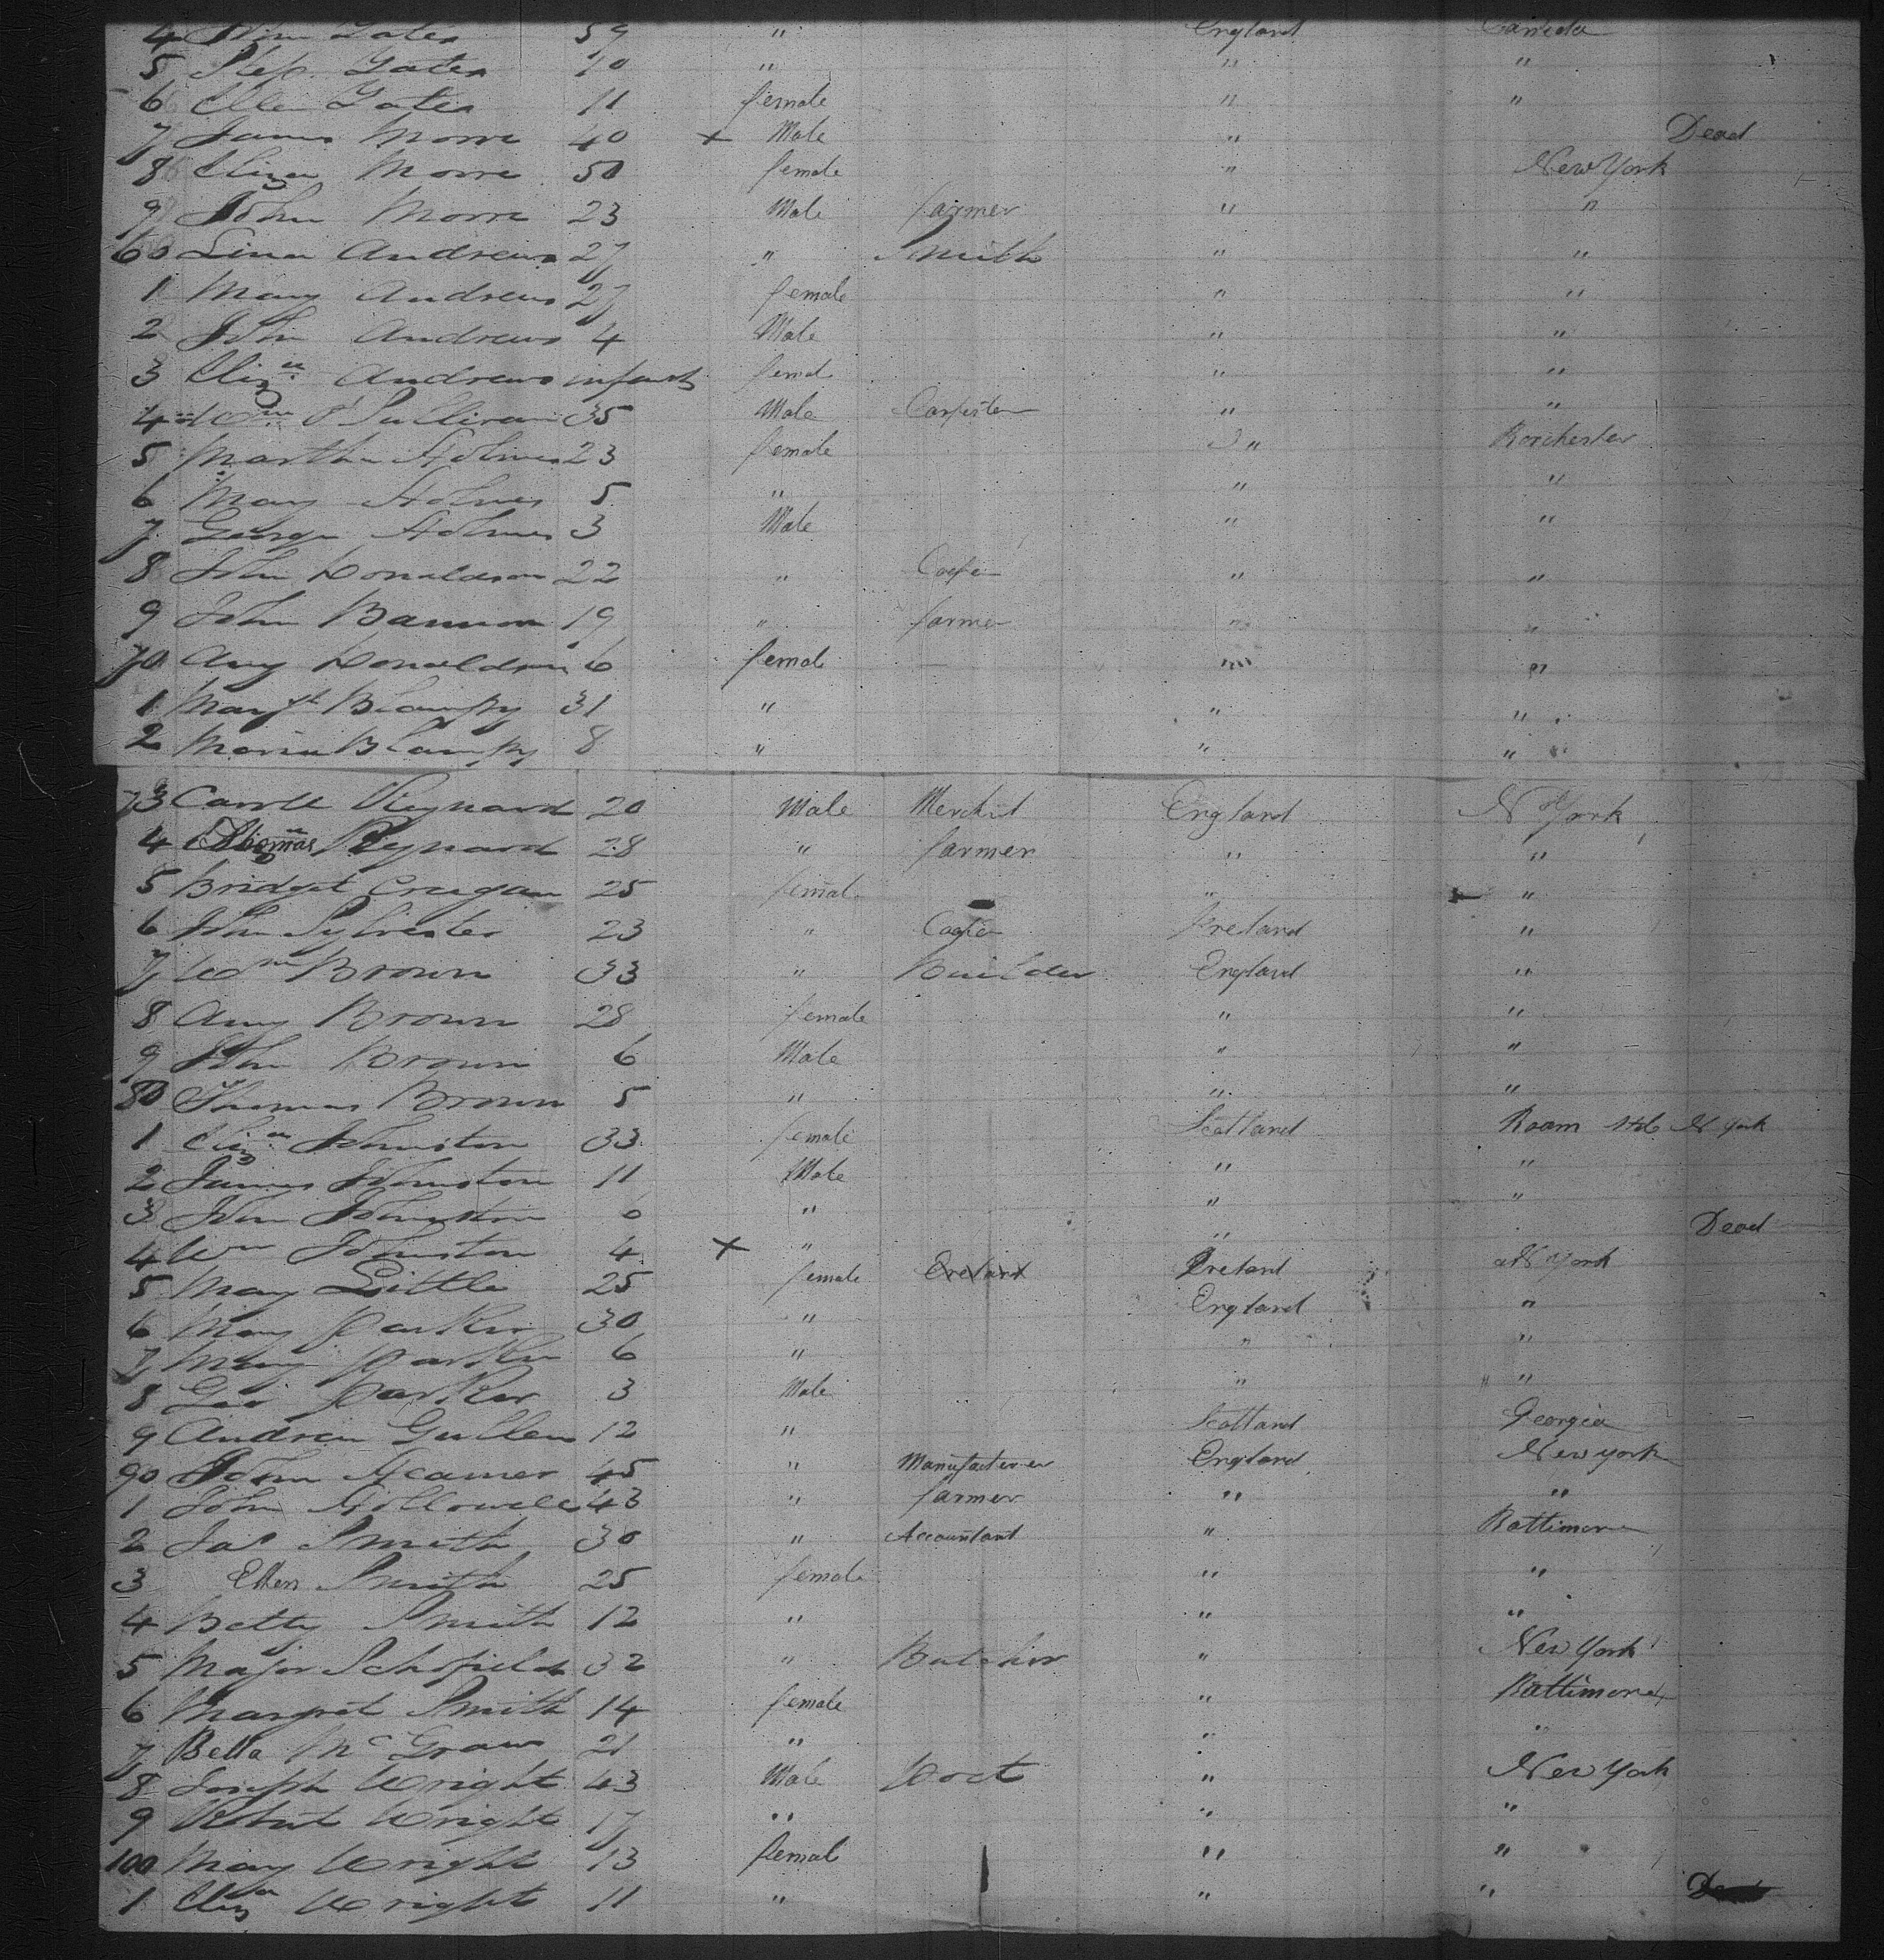 4 Gates 59 " England Canada
5 Step. Gates 10 " " "
6 Ellen Gates 11 female " "
7 James Morre 40 + Male " Dead
8 Eliza Morre 50 female " New York
9 John Morre 23 Male farmer " "
60 Andrews 27 " Smith " "
1 Mary Andrews 27 female " "
2 John Andrews 4 Male " "
3 Eliza Andrews infant femal " "
4 Wm O'Sullivan 35 Male " "
5 Martha Holmes 23 female " Rorchester
6 Mary Holmes 5 " " "
7 George Holmes 3 Male " "
8 John Donaldson 22 " " "
9 John Bannon 19 " farmer " "
70 Amy Donaldson 6 femal " "
1 Margt Blampy 31 " " "
2 Maria Blampy 8 " " "
73 Reynard 20 Male Mercht England N York
4 Thomas Reynard 28 " farmer " "
5 Bridget 25 femal " "
6 John Sylvester 23 " Ireland "
7 Wm Brown 33 " Builder England "
8 Amy Brown 28 female " "
9 John Brown 6 Male " "
80 Thomas Brown 5 " " "
1 Eliza Johnston 33 female Scotland N York
2 James Johnston 11 Male " "
3 John Johnston 6 " " "
4 Wm Johnston 4 + " " Dead
5 Mary Little 25 female Ireland N York
6 Mary Parker 30 " England "
7 Mary Parker 6 " " "
8 Geo Parker 3 Male " "
9 Andrew Gullen 12 " Scotland Georgia
90 John 45 " Manufacterer England New york
1 John Hollowell 43 " farmer " "
2 Jas Smith 30 " Accountant " Baltimore
3 Ellen Smith 25 female " "
4 Betty Smith 12 " " "
5 Major Schofield 32 " Butcher " New York
6 Margret Smith 14 female " Baltimore
7 Bella McGraw 21 " " "
8 Joseph Wright 43 Male " New York
9 Robert Wright 17 " " "
100 Mary Wright 13 femal " "
1 Eliza Wright 11 " " "